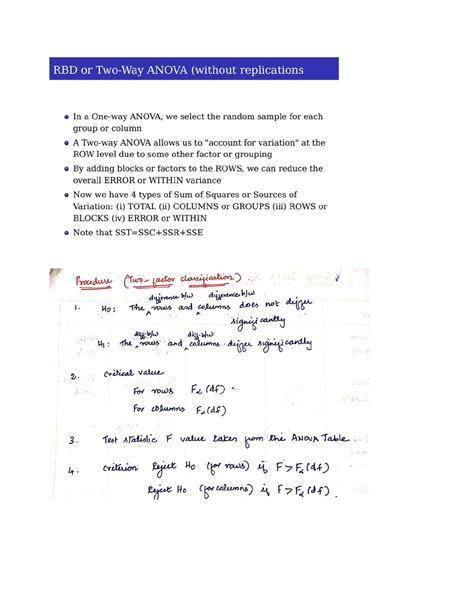 RBD or Two-Way ANOVA (without replications
In a One-way ANOVA, we select the random sample for each
group or column
A Two-way ANOVA allows us to "account for variation" at the
ROW level due to some other factor or grouping
By adding blocks or factors to the ROWS, we can reduce the
overall ERROR or WITHIN variance
Now we have 4 types of Sum of Squares or Sources of
Variation: (i) TOTAL (ii) COLUMNS or GROUPS (iii) ROWS or
BLOCKS (iv) ERROR or WITHIN
Note that SST=SSC+SSR+SSE
Procedure (Two-factor classification)
difference b/w difference b/w
1. H0: The rows and columns does not differ
significantly
diff. b/w diff. b/w
H1: The rows and columns differ significantly
2. Critical value
For rows Fα (df)
For columns Fα (df)
3. Test statistic F value taken from the ANOVA Table
4. Criterion Reject H0 (for rows) if F > Fα (df)
Reject H0 (for columns) if F > Fα (df).